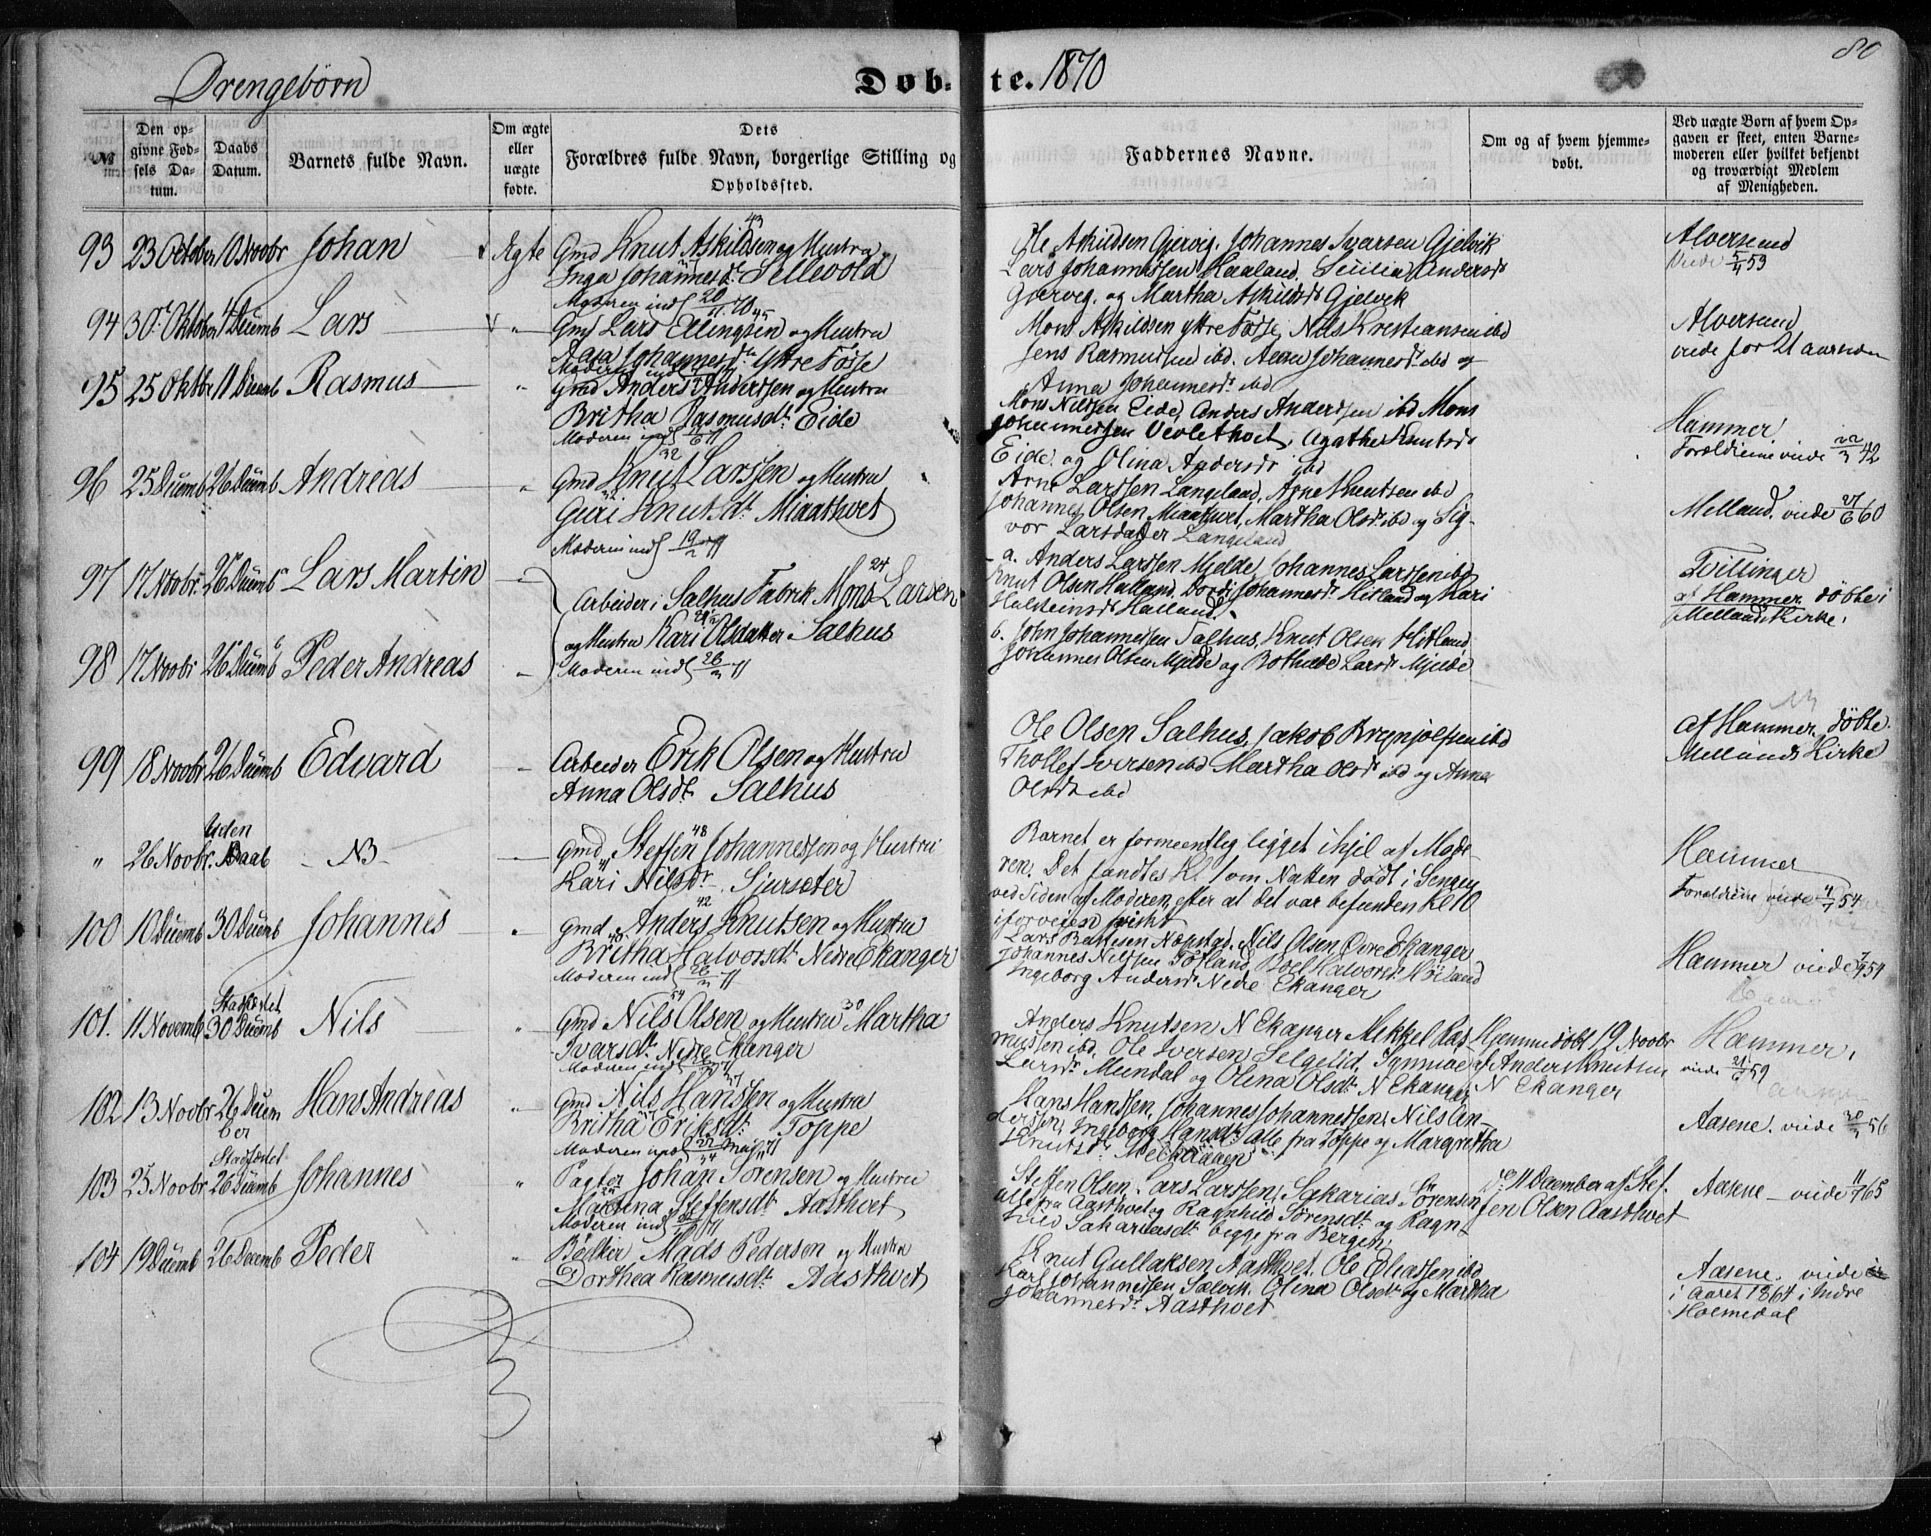 80
Drengebørn
Døbte. 1870
№
Den opgivne Fødsels Datum.
Daabs Datum.
Barnets fulde Navn.
Om ægte eller uægte fødte.
Dets Forældres fulde Navn, borgerlige Stilling og Opholdssted.
Faddernes Navne.
Om og af hvem hjemmedøbt.
Ved uægte Børn af hvem Opgaven er skeet, enten Barnemoderen eller hvilket bekjendt og troværdigt Medlem af Menigheden.
93 23 October 10 Novbr Johan Ægte Gmd Knut Askildsen og Hustru
Inga Johannesdr. Sellevold
Ole Askildsen Gjervig. Johannes Ivarsen Gjelvik
Lars Johannessen Haaland, Sicilia Andersdr
Gjervig. og Martha Askildsdr Gjelvik
Alversund
94 30. Oktober Lars " Gmd Lars Ellingsen og Hustru
Aasa Johannesdr Ytre Fosse
Mons Askildsen ytre Fosse, Nils Kristiansen ibd
Jens Rasmussen ibd. Johannesdr ibd og
Anna Johannesdr ibd
Alversund
viede for 21 aar siden
95 25 Oktbr 11 Decemb Rasmus " Gmd Anders Andersen og Hustru
Britha Rasmusdr. Eide
Mons Nilssen Eide, Anders Andersen ibd Mons
Johannessen Agatha Knutsdr
Eide. og Olina Andersdr ibd
Hammer
Forældrene viede 22/3 42
96 25 Decemb 26 Decemb Andreas " Gmd Knut Larssen og Hustru
Guri Knutsdr. Miaathvet
Moderen indl 19/2 71
Arne Larssen Langeland, Arne Knutsen ibd
Johannes Olsen Miaathvet, Martha Olsdr ibd og Sigvor Larsdatter Langeland
Melland. viede 27/6 60
97 17 Novbr. 26 Decemb Lars Martin
Arbeider i Salhus Fabrik Mons Larsen
og Hustru Kari Olsdatter i Salhus
Moderen indl 26/3 71
a. Anders Larssen Mjelde, Johannes Larssen ibd
Knut Olsen Hatland, Johannesdr Hitland og Kari
Halsteinsdr Hatland.
Tvillinger
af Hammer døbte i
Mellands Kirke.
98 17 Novbr 26 Decemb Peder Andreas "
b. John Johannessen Salhus, Knut Olsen Hitland,
Johannes Olsen Mjelde og Larsdr Mjelde
99 18 Novbr 26 Decemb Edvard " Arbeider Erik Olsen og Hustru
Anna Olsdr. Salhus
Ole Olsen Salhus, Jakob Brynjolfsen ibd
Thollef Iversen ibd Martha Olsdr ibd og Anna
Olsdr ibd
af Hammer, døbte.
Mellands Kirke
" 26 Novbr. Uden Daab - NB - Gmd Steffen Johannessen og Hustru
Kari Nilsdr. Sjursæter
Barnet er formeentlig ligget ihjel af Moderen. Det fandtes Kl 1 om Natten dødt i Sengen
ved Siden af Moderen, efter at det var befunden Kl 10
iforveien friskt
Hammer
Forældrene viede 54
100 10 Decemb 30 Decemb Johannes " Gmd Anders Knutsen og Hustru
Britha Halvorsdr. Nedre Ekanger
Moderen indl 26/3 71
Lars Næpstad, Nils Olsen Øvre Ekanger
Johannes Nilssen Totland Boel Halvorsdr Høiland
Ingeborg Andersdr Nedre Ekanger
Hammer viede 54
101. 11 Novemb Stadfæstet 30 Decemb Nils " Gmd Nils Olsen og Hustru Martha
Ivarsdr. Nedre Ekanger
Anders Knutsen N Ekanger Mikkel Rasmussen ibd. Ole Iversen Selgelid,
Larsdr Mundal og Olina Olsdr N Ekanger
Hjemmedøbt 19 Novbr
af Anders Knutsen
N Ekanger
Hammer,
viede 59
102 13 Novbr 26 December Hans Andreas " Gmd Nils Hanssen og Hustru
Britha Eriksdr. Toppe
Hans Hanssen, Johannes Johannessen, Nils Anderssen, Ingeborg Hansdr alle fra Toppe og Margretha
Knutsdr.
Aasene. viede 56
103 25 Novbr Stadfæstet 26 Decemb Johannes " Pagter Johan Sørensen og Hustru
Martina Steffensdr. Aasthvet
Steffen Olsen, Lars Larssen, Sakarias Sørensen
alle fra Aasthvet og Ragnhild Sørensdr. og Ragnhild Sakariasdr. begge fra Bergen.
11 December af Steffen Olsen Aasthvet
Aasene - viede 65
104 19 Decemb 26 Decemb Peder " Bødker Mads Pedersen og Hustru
Dorthea Rasmusdr. Aasthvet
Knut Gullaksen Aasthvet. Ole Eliassen ibd.
Lars Johannessen Sælvik. Olina Olsdr og Martha
Johannesdr. Aasthvet
Aasene. viede
i Aaret 1864 i Indre
Holmedal